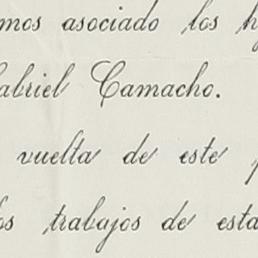 mos asociado los h
abriel Camacho.
vuelta de este p
os trabajos de esta